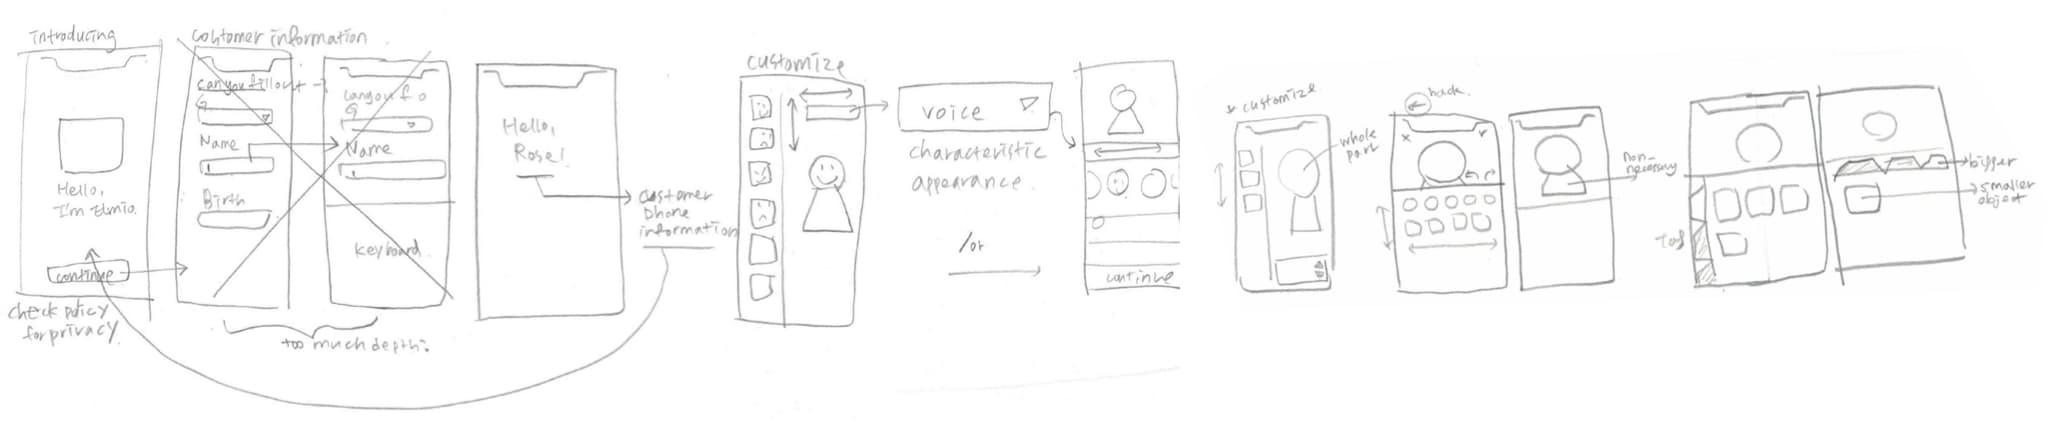 introducing
Hello,
I'm Elmio.
continue
check policy
for privacy
Costomer information
can you fill out
G
Name
Birth
can you f o
G
Name
keyboard
too much depth
Hello,
Rose!
customer
phone
information
customize
voice
characteristic
appearance
/or
continue
* customize
whole
part
back
x
v
non-
necessary
Tab
bigger
smaller
object